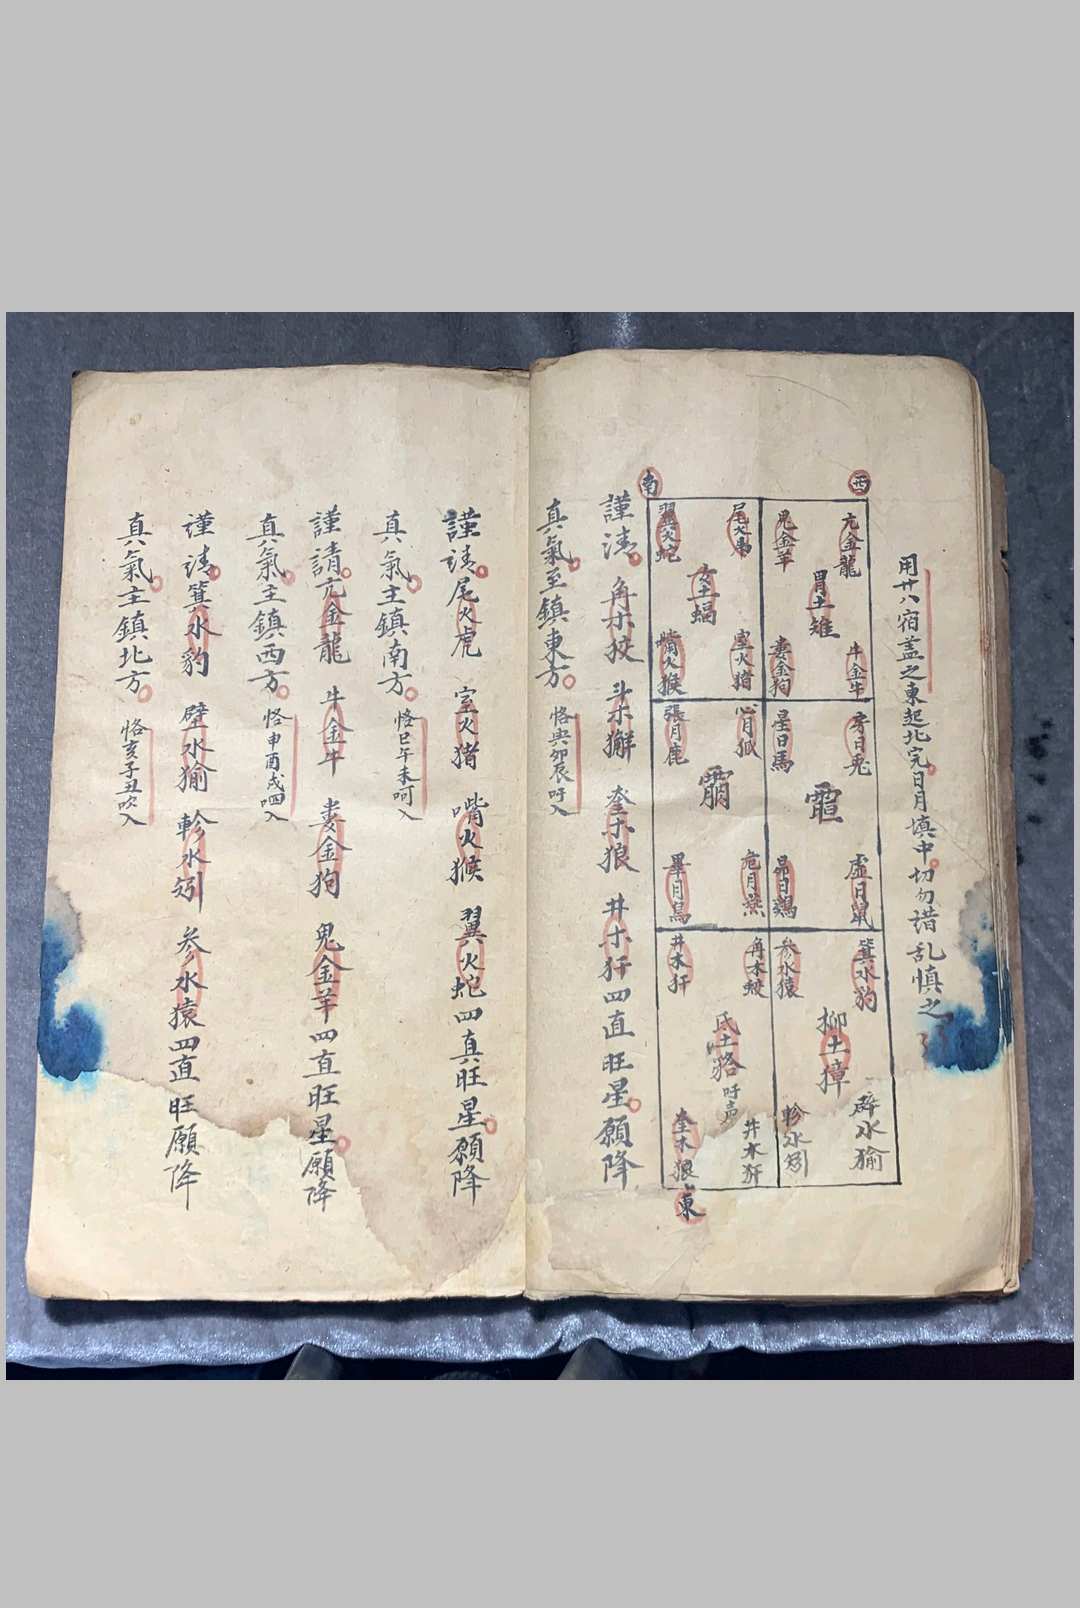 用廿八宿盖之東起北完日月填中切勿措乱慎之
西
南
亢金龍
胃土雉
鬼金羊
牛金牛
婁金狗
尾火虎
女土蝠
翼火蛇
室火猪
嘴火猴
房日兎
星日馬
虚日鼠
昴日鷄
心月狐
張月鹿
危月燕
畢月烏
箕水豹
柳土獐
参水猿
壁水㺄
軫水蚓
角木蛟
氐土狢 吁声
井木犴
井木犴
奎木狼
東
謹請角木狡 斗木獬 奎木狼 井木犴四直旺星願降
真氣至鎮東方 恪寅卯辰吁入
謹請尾火虎 室火猪 嘴火猴 翼火蛇四真旺星願降
真氣主鎮南方 恪巳午未呵入
謹請亢金龍 牛金牛 婁金狗 鬼金羊四直旺星願降
真氣主鎮西方 恪申酉戌呬入
謹請箕水豹 壁水㺄 軫水蚓 参水猿四直旺願降
真氣主鎮北方 恪亥子丑吹入